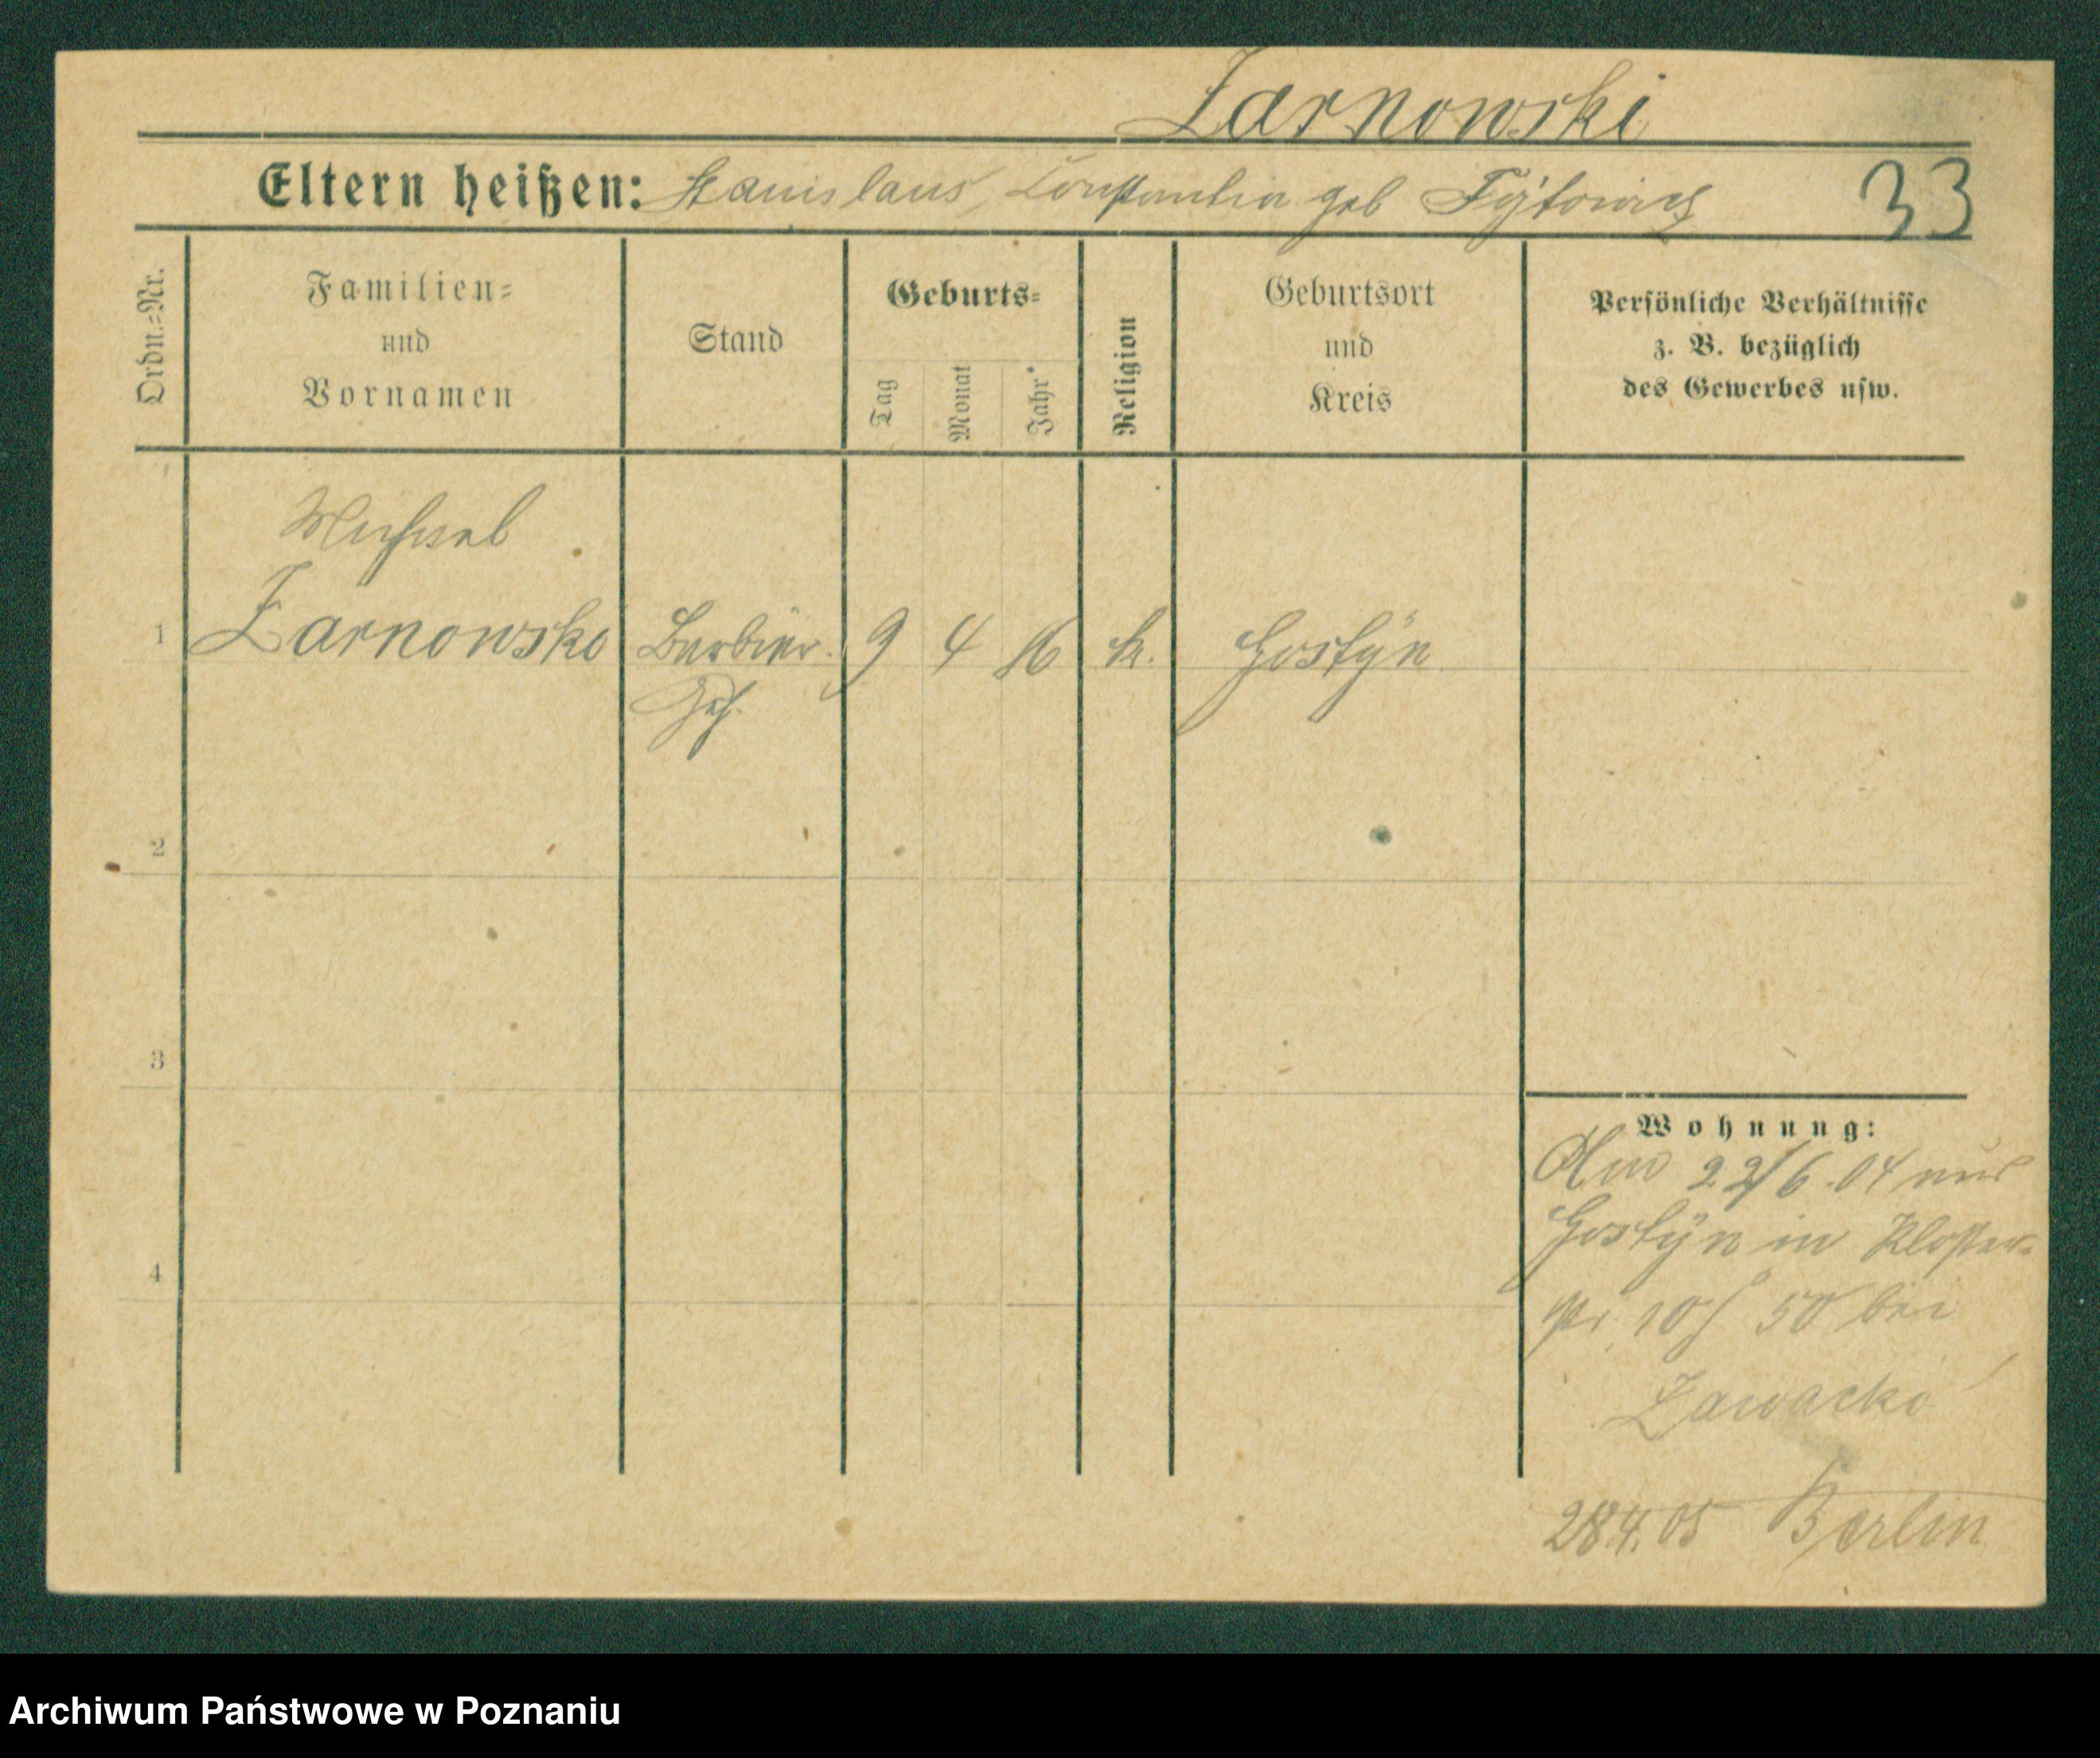 Żarnowski
Eltern heißen: Stanislaus, Constantia geb
33
Ordn.=Nr.
Familien=
und
Vornamen
Stand
Geburts=
Tag
Monat
Jahr
Religion
Geburtsort
und
Kreis
Persönliche Verhältnisse
z. B. bezüglich
des Gewerbes usw.
Michael
1 Żarnowski Barbier. 9 4 86 k. Gostyn
Geh.
2
3
4
Wohnung:
22/6.04 aus
Gostyn in Kloster=
50 bei
Zawacki
28.4.05 Berlin
Archiwum Państwowe w Poznaniu